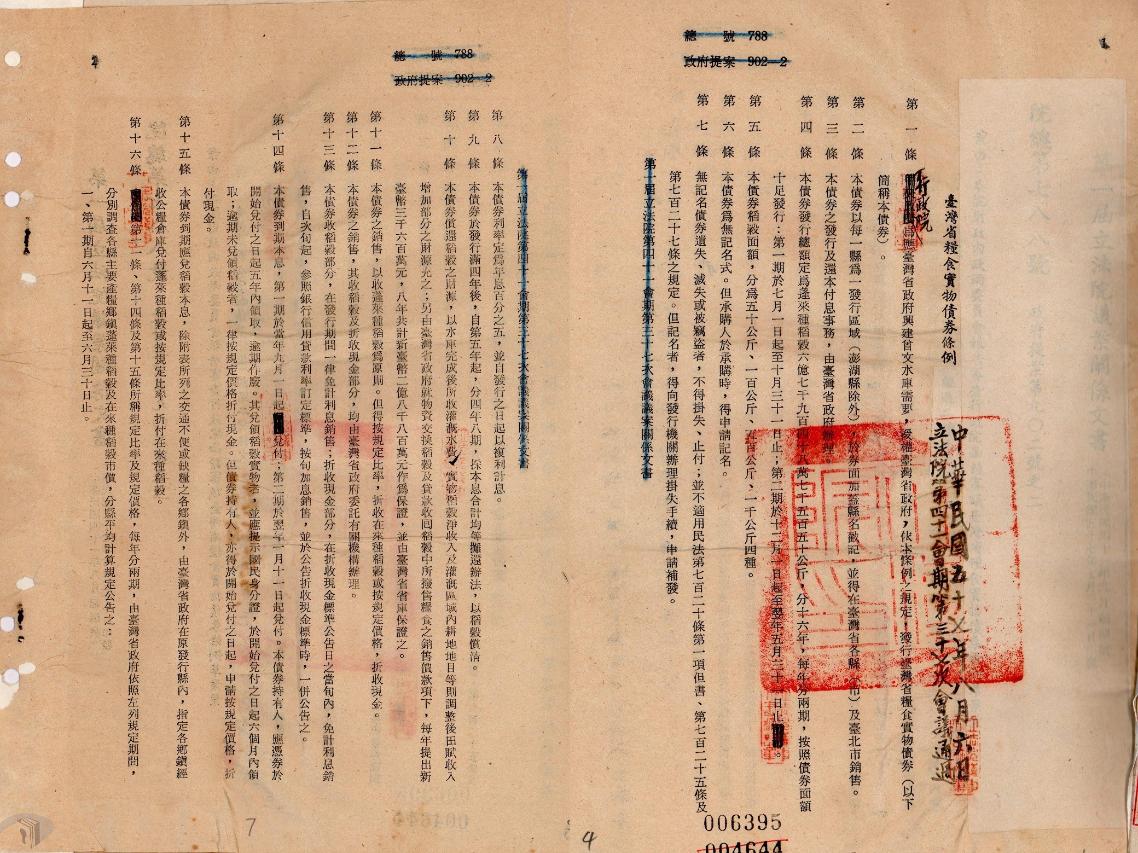 1
總　號　788
政府提案　902—2
臺灣省糧食實物債券條例
中華民國五十七年八月六日
立法院第四十一會期第三十七次會議通過
第一條　行政院為應臺灣省政府興建曾文水庫需要，授權臺灣省政府，依本條例之規定，發行臺灣省糧食實物債券（以下
簡稱本債券）。
第二條　本債券以每一縣爲一發行區域（澎湖縣除外）於券面加蓋縣名戳記，並得在臺灣省各縣（市）及臺北市銷售。
第三條　本債券之發行及還本付息事務，由臺灣省政府辦理。
第四條　本債券發行總額定爲蓬萊種稻穀六億七千九百四十八萬七千五百五十公斤，分十六年，每年分兩期，按照債券面額
十足發行：第一期於七月一日起至十月三十一日止；第二期於十二月一日起至翌年五月三十一日止。
第五條　本債券稻穀面額，分爲五十公斤、一百公斤、五百公斤、一千公斤四種。
第六條　本債券爲無記名式。但承購人於承購時，得申請記名。
第七條　無記名債券遺失、滅失或被竊盜者，不得掛失、止付；並不適用民法第七百二十條第一項但書、第七百二十五條及
第七百二十七條之規定。但記名者，得向發行機關辦理掛失手續，申請補發。
第一屆立法院第四十一會期第三十七次會議議案關係文書
006395
004644
4
2
總　號　788
政府提案　902—2
第一屆立法院第四十一會期第三十七次會議議案關係文書
第八條　本債券利率定爲年息百分之五，並自發行之日起以複利計息。
第九條　本債券於發行滿四年後，自第五年起，分四年八期，採本息合計均等攤還辦法，以稻穀償清。
第十條　本債券償還稻穀之財源，以水庫完成後所收灌溉水費，實徵稻穀淨收入及灌溉區域內耕地地目等則調整後田賦收入
增加部分之財源充之；另由臺灣省政府就物資交換稻穀及貸款收回稻穀中所撥售糧食之銷售價款項下，每年提出新
臺幣三千六百萬元，八年共計新臺幣二億八千八百萬元作爲保證，並由臺灣省省庫保證之。
第十一條　本債券之銷售，以收蓬萊種稻穀爲原則。但得按規定比率，折收在來種稻穀或按規定價格，折收現金。
第十二條　本債券之銷售，其收稻穀及折收現金部分，均由臺灣省政府委託有關機構辦理。
第十三條　本債券收稻穀部分，在發行期間一律免計利息銷售；折收現金部分，在折收現金標準公告日之當旬內，免計利息銷
售，自次旬起，參照銀行信用貸款利率訂定標準，按旬加息銷售，並於公告折收現金標準時，一併公告之。
第十四條　本債券到期本息，第一期於當年九月一日起兌付；第二期於翌年一月十一日起兌付。本債券持有人，應憑券於
開始兌付之日起五年內領取，逾期作廢。其兌領稻穀實物者，並應提示國民身分證，於開始兌付之日起六個月內領
取；逾期未兌領稻穀者，一律按規定價格折付現金。但債券持有人，亦得於開始兌付之日起，申請按規定價格，折
付現金。
第十五條　本債券到期應兌稻穀本息，除附表所列之交通不便或缺糧之各鄉鎮外，由臺灣省政府在原發行縣內，指定各鄉鎮經
收公糧倉庫兌付蓬萊種稻穀或按規定比率，折付在來種稻穀。
第十六條　第十一條、第十四條及第十五條所稱規定比率及規定價格，每年分兩期，由臺灣省政府依照左列規定期間，
分別調查各縣主要產糧鄉鎮蓬萊種稻穀及在來種稻穀市價，分縣平均計算規定公告之：
一、第一期自六月十一日起至六月三十日止。
7